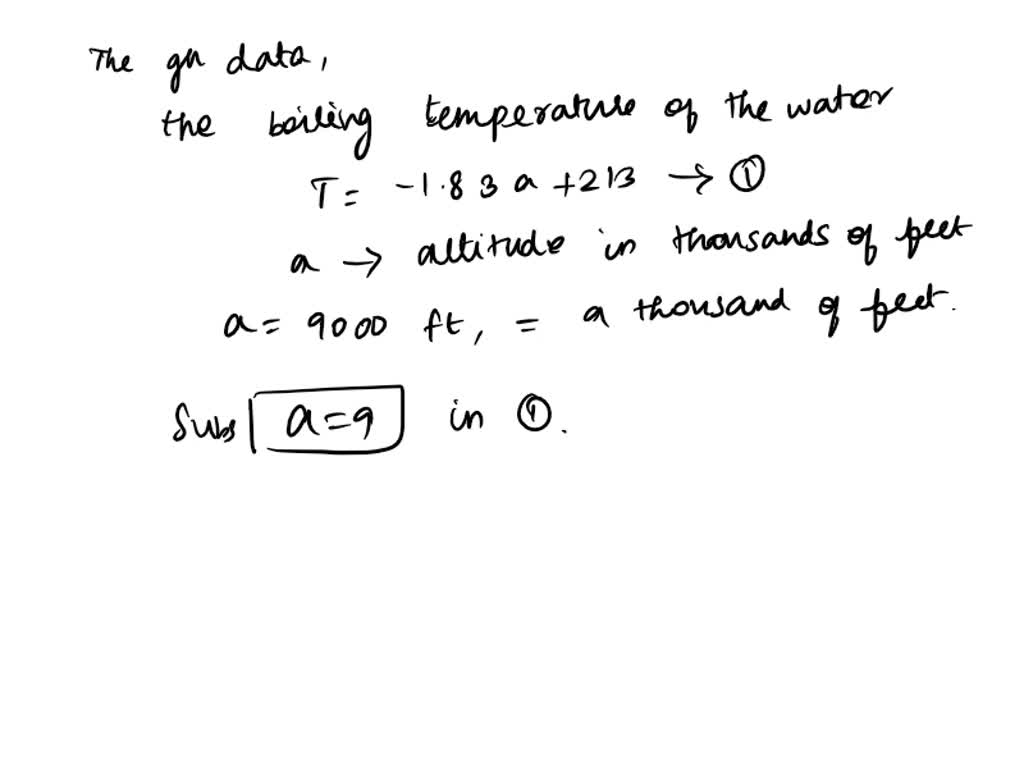 The gn data,
the boiling temperature of the water
T = -1.83 a + 213 → ①
a → altitude in thousands of feet
a = 9000 ft, = a thousand of feet.
Subs a=9 in ①.